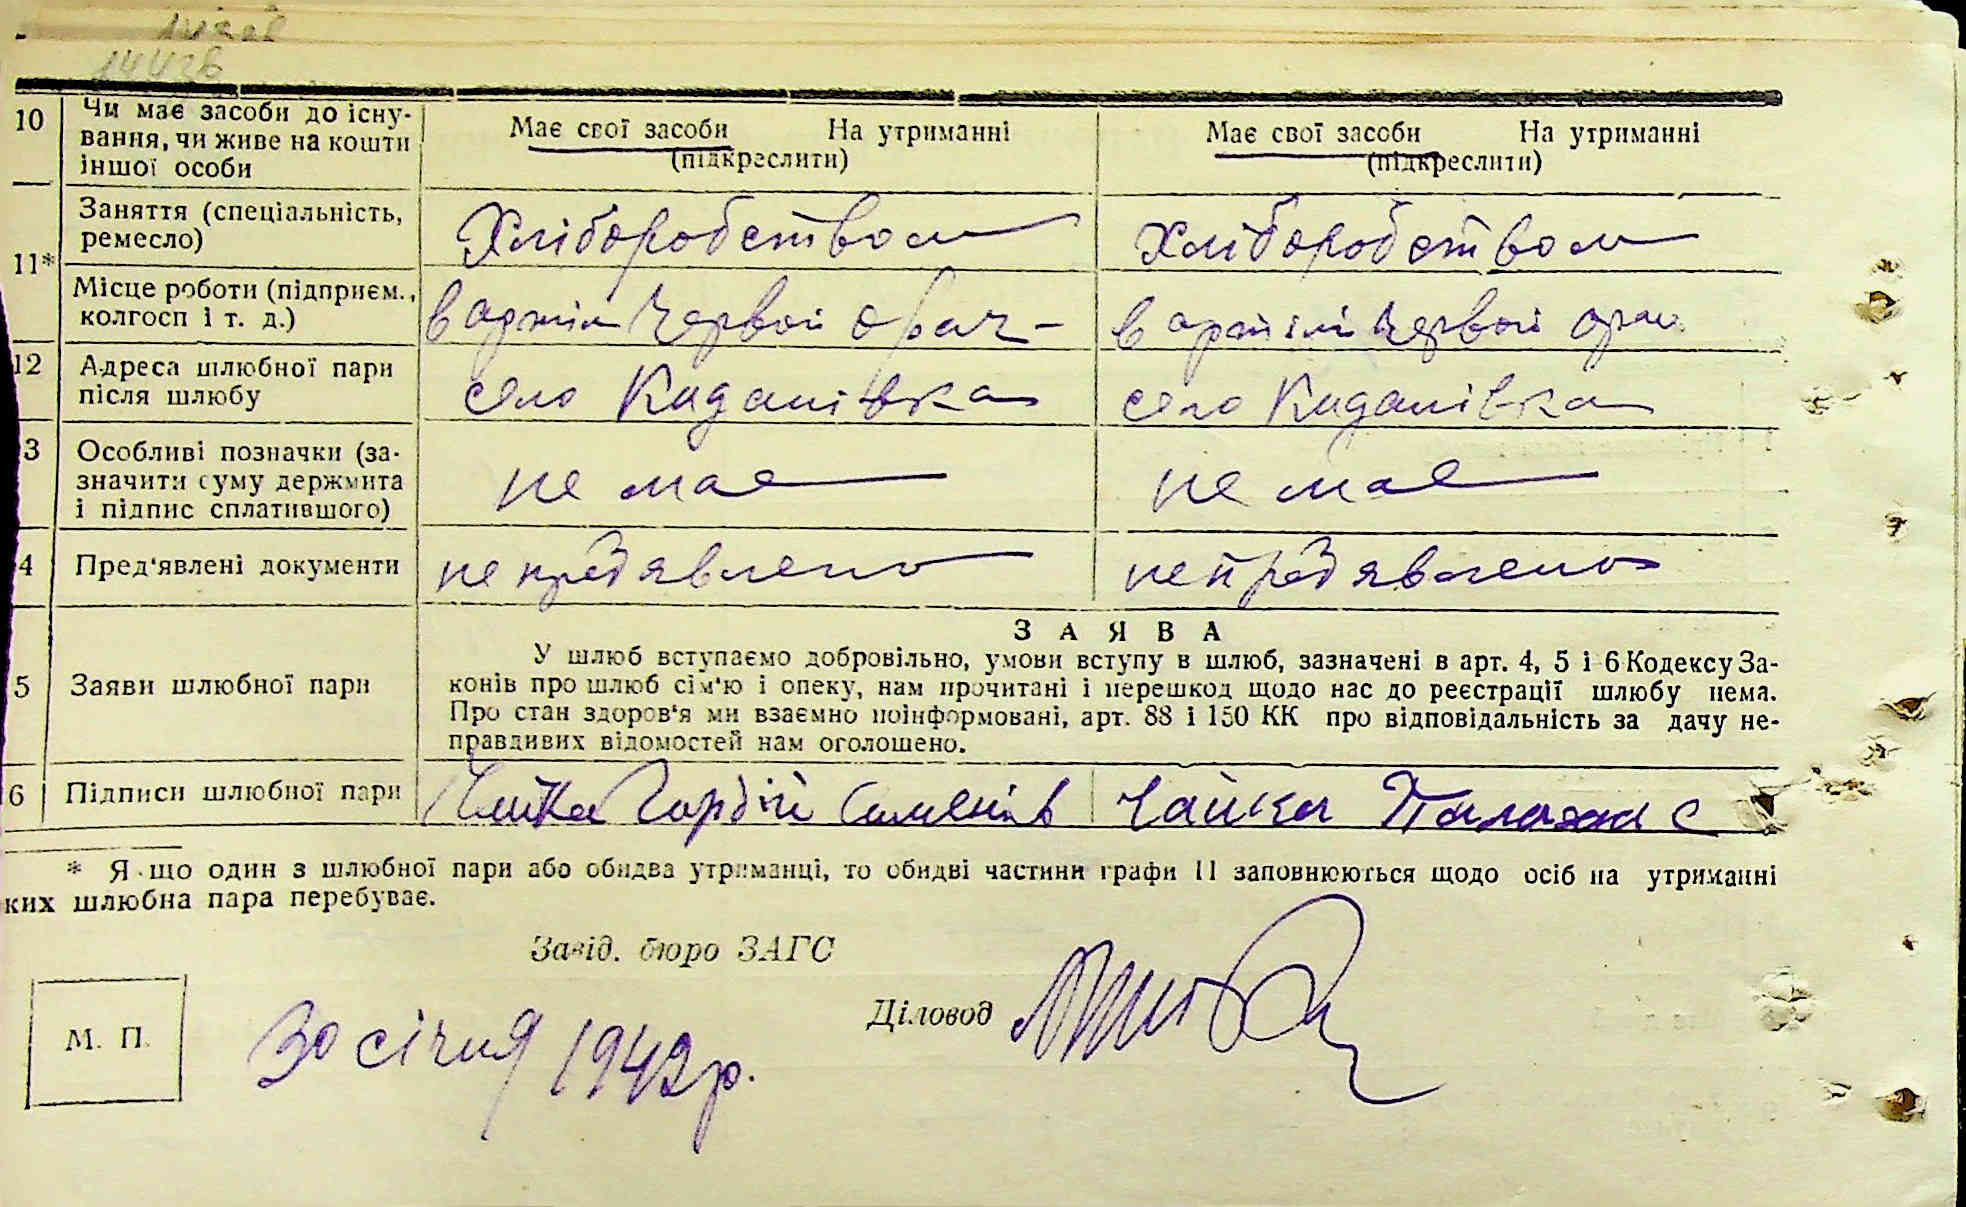 14428
10 Чи має засоби до існу-
вання, чи живе на кошти
іншої особи
Має свої засоби На утриманні
(підкреслити)
Має свої засоби На утриманні
(підкреслити)
11* Заняття (спеціальність,
ремесло)
Хліборобством
Хліборобством
Місце роботи (підприєм.,
колгосп і т. д.)
в артілі Червон орач
в артілі Червон орач
12 Адреса шлюбної пари
після шлюбу
село Кидалівка
село Кидалівка
3 Особливі позначки (за-
значити суму держмита
і підпис сплатившого)
не має
не має
4 Пред'явлені документи
не предявлено
не предявлено
5 Заяви шлюбної пари
ЗАЯВА
У шлюб вступаємо добровільно, умови вступу в шлюб, зазначені в арт. 4, 5 і 6 Кодексу За-
конів про шлюб сім'ю і опеку, нам прочитані і перешкод щодо нас до реєстрації шлюбу нема.
Про стан здоров'я ми взаємно поінформовані, арт. 88 і 150 КК про відповідальність за дачу не-
правдивих відомостей нам оголошено.
6 Підписи шлюбної пари
Чайка Гордій Семенів
Чайка Палажка С
* Я що один з шлюбної пари або обидва утриманці, то обидві частини графи 11 заповнюються щодо осіб на утриманні
ких шлюбна пара перебуває.
Завід. бюро ЗАГС
Діловод
М. П.
30 січня 1942 р.